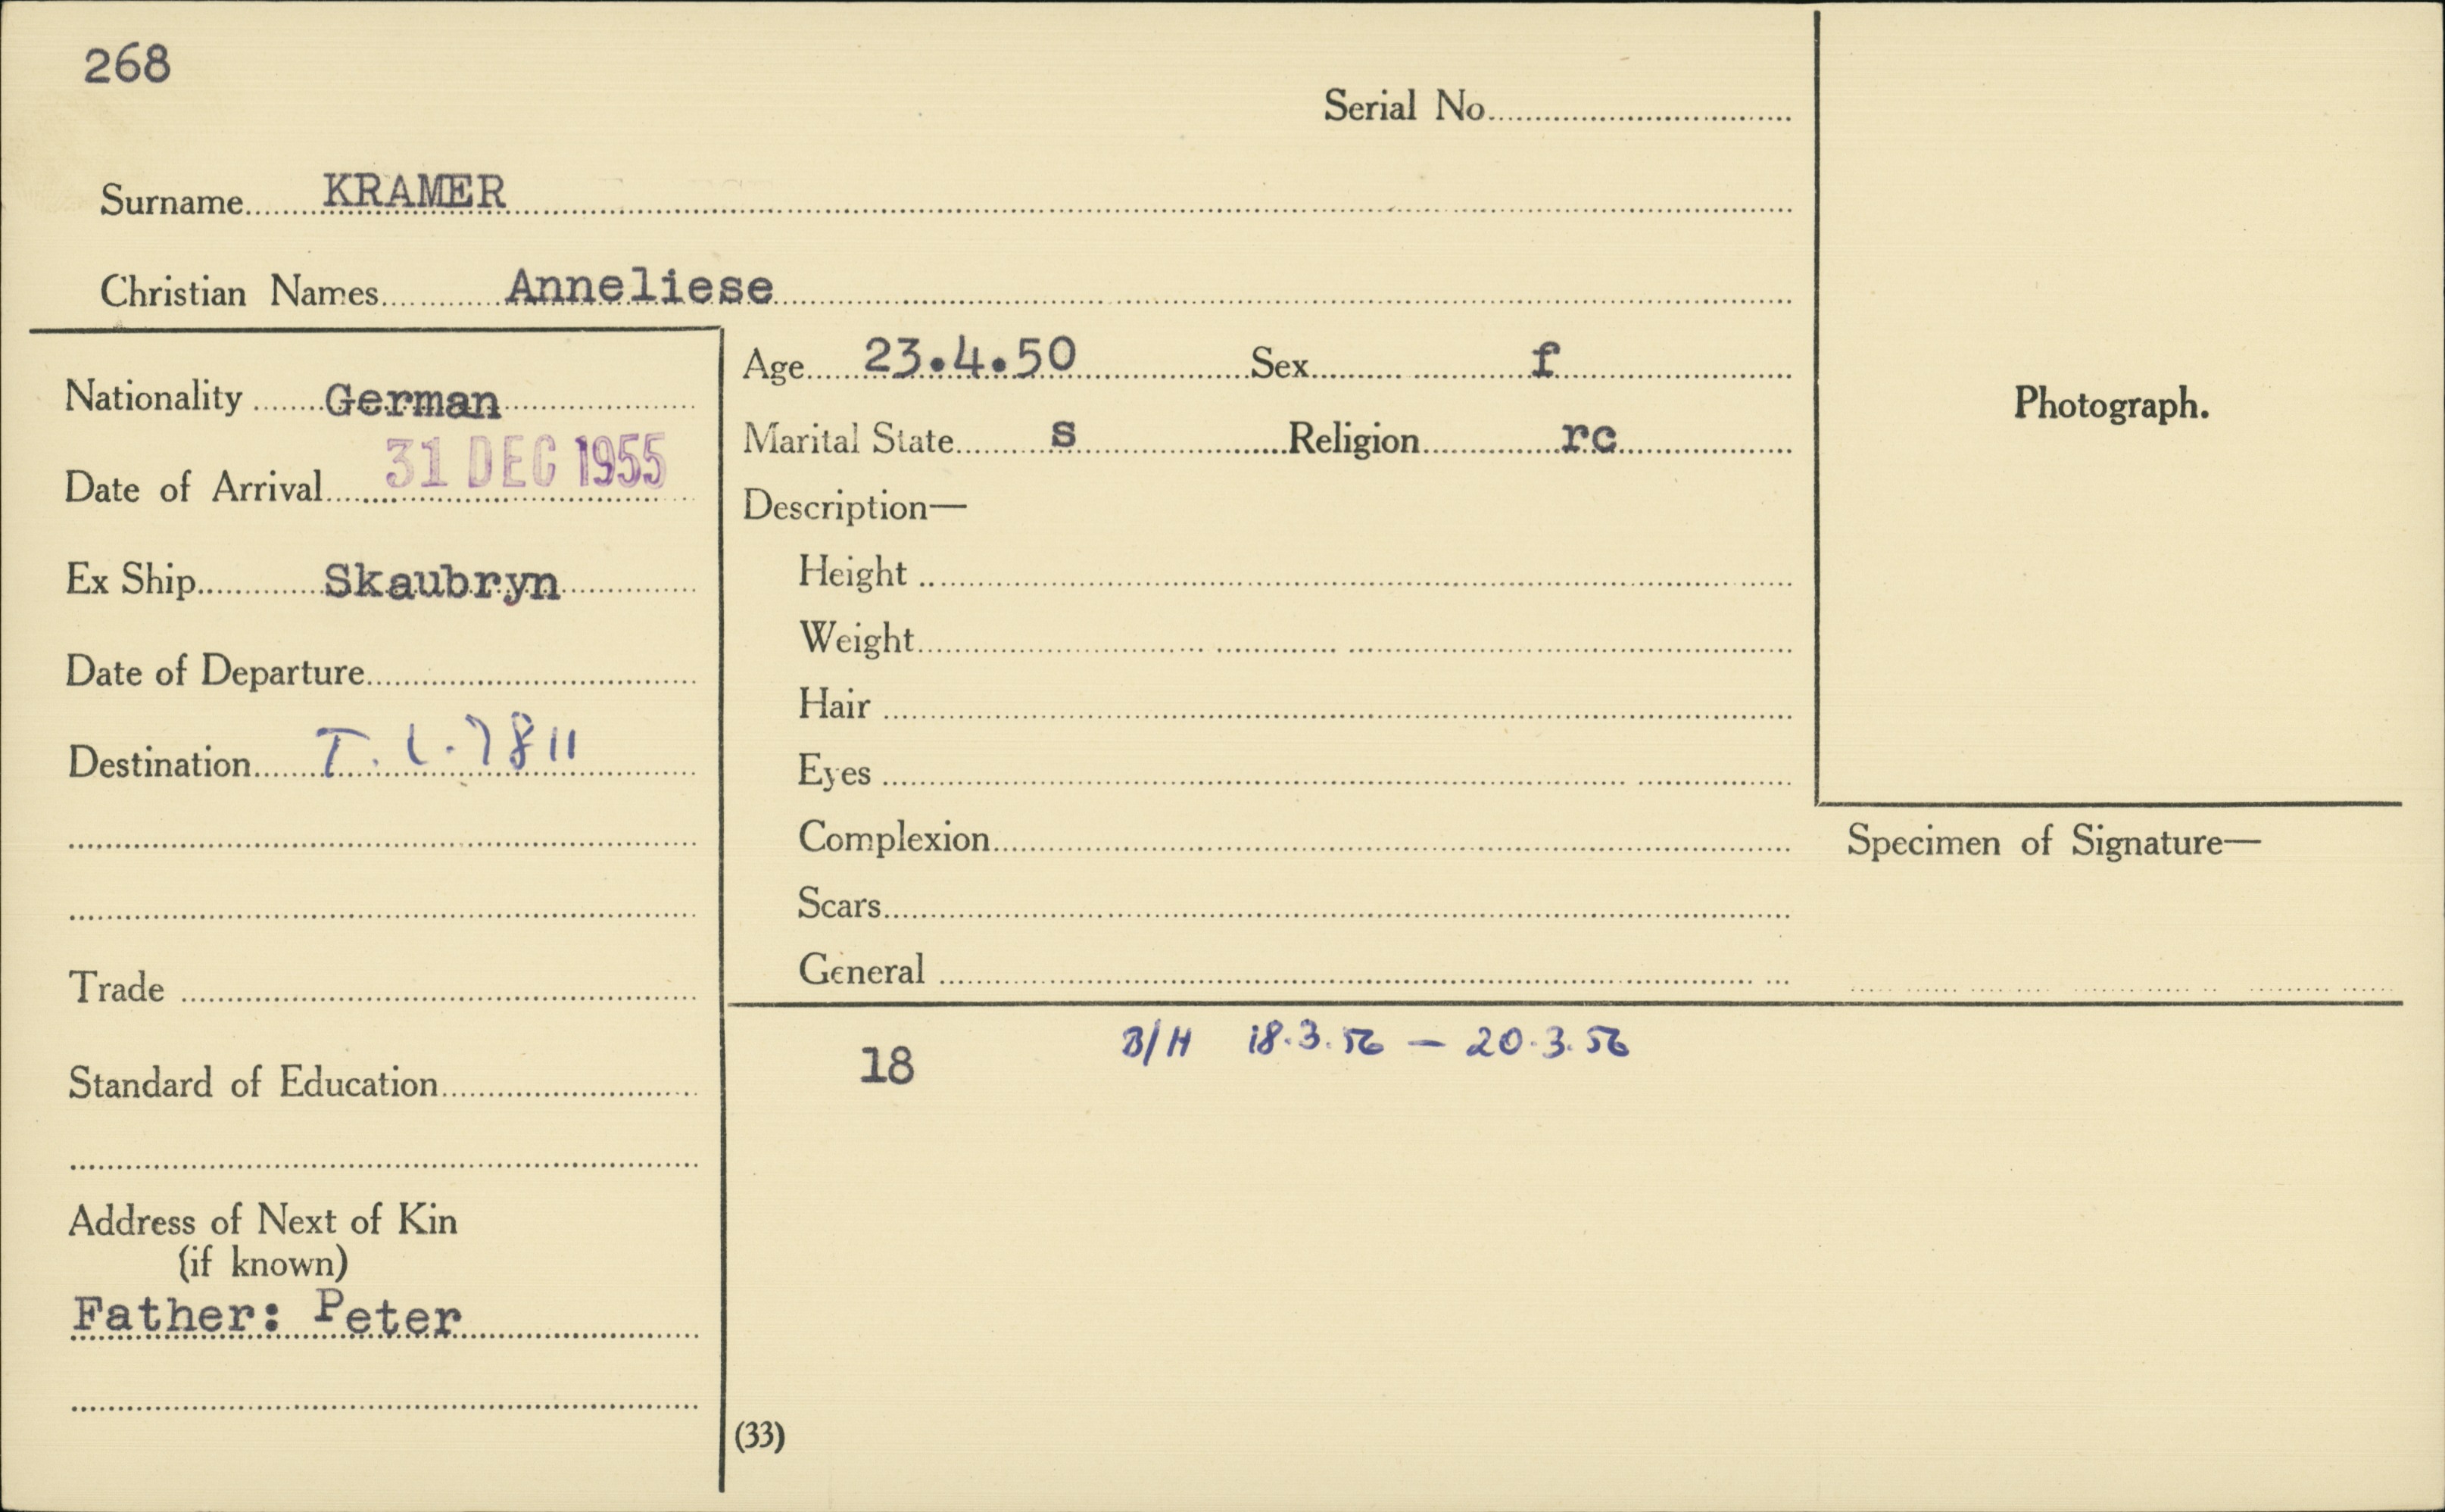 268
Serial No
Surname KRAMER
Christian Names Anneliese
Nationality German
Date of Arrival 31 DEC 1955
Ex Ship Skaubryn
Date of Departure
Destination T. L. 7811
Trade
Standard of Education
Address of Next of Kin
(if known)
Father: Peter
Age 23.4.50 Sex f
Marital State s Religion rc
Description—
Height
Weight
Hair
Eyes
Complexion
Scars
General
18 B/H 18.3.56 — 20.3.56
(33)
Photograph.
Specimen of Signature—